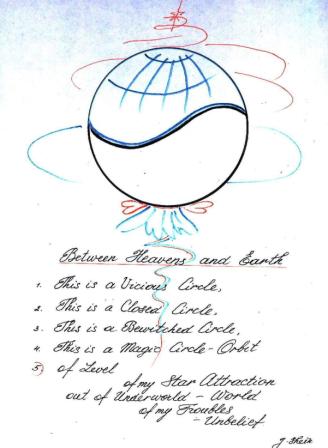 Between Heavens and Earth
1. This is a Vicious Circle,
2. This is a Closed Circle,
3. This is a Bewitched Circle,
4. This is a Magic Circle-Orbit
5) of Level
of my Star Attraction
out of Underworld - World
of my Troubles
- Unbelief